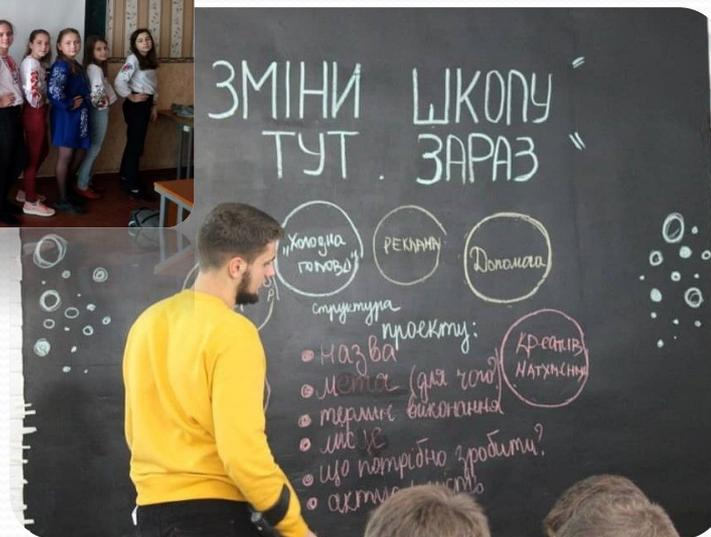 ЗМІНИ ШКОЛУ"
ТУТ . ЗАРАЗ"
"Холодна голова"
РЕКЛАМА
Допомога
структура
проекту:
КРЕАТИВ
НАТХНЕННЯ
• назва
• мета (для чого)
• термін виконання
• що потрібно зробити?